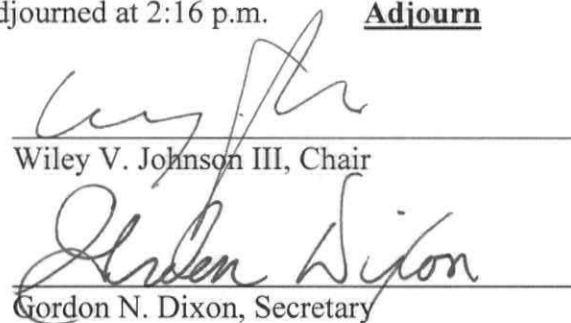 djourned at 2:16 p.m. Adjourn
Wiley V. Johnson III, Chair
Gordon Dixon
Gordon N. Dixon, Secretary